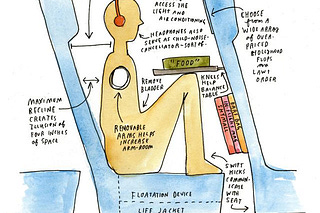 ACCESS THE
LIGHT AND
AIR CONDITIONING
HEADPHONES ALSO
SERVE AS CHILD-NOISE-
CANCELLATOR-SORTOF.
CHOOSE
FROM A
WIDE ARRAY
OF OVER-
PRICED
HOLLYWOOD
FLOPS
AND
LAW &
ORDER
"FOOD"
REMOVE
BLADDER
KNEES
HELP
BALANCE
TABLE
MAXIMUM
RECLINE
CREATES
ILLUSION OF
FOUR INCHES
OF SPACE
REMOVABLE
ARMS HELPS
INCREASE
ARM-ROOM
SWIFT
KICKS
COMMUN-
ICATE
WITH
SEAT
FLOATATION DEVICE
LIFE JACKET